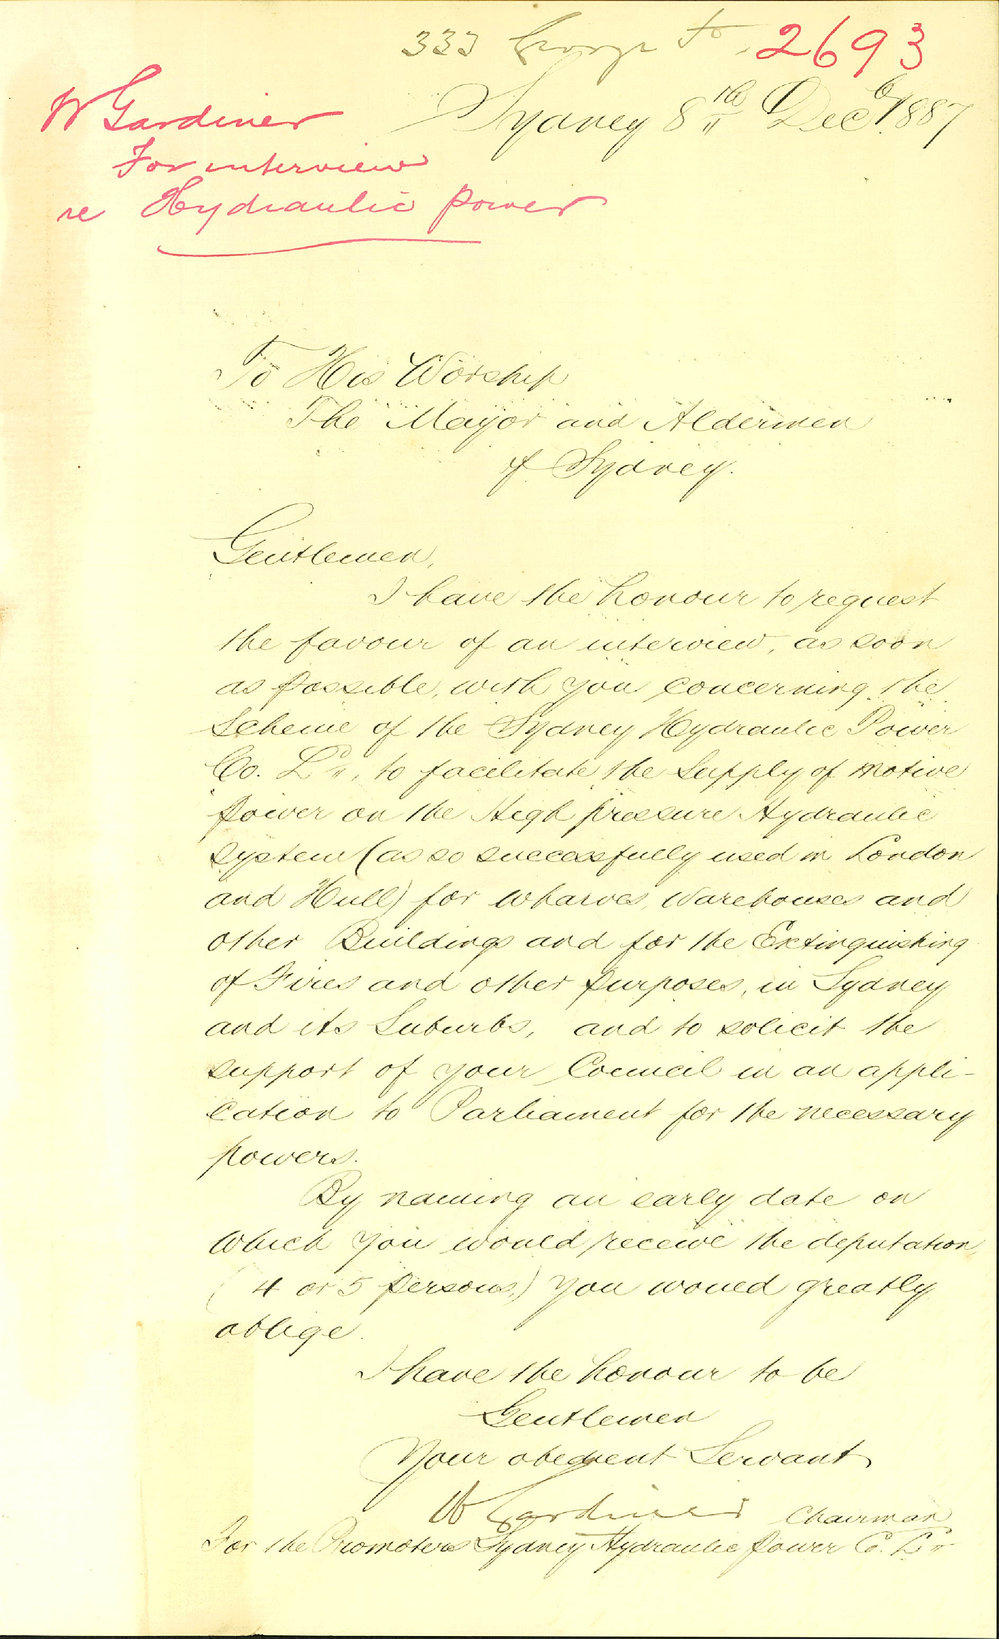 333 George St. 2693
Sydney 8th Decb 1887
W Gardiner
For interview
re Hydraulic power
To His Worship
The Mayor and Aldermen
of Sydney.
Gentlemen,
I have the honour to request
the favour of an interview, as soon
as possible, with you concerning the
Scheme of the Sydney Hydraulic Power
Co. Ld, to facilitate the Supply of motive
power on the High pressure Hydraulic
system (as so successfully used in London
and Hull) for Wharves Warehouses and
other Buildings and for the Extinguishing
of Fires and other purposes, in Sydney
and its Suburbs, and to solicit the
support of your Council in an appli-
cation to Parliament for the necessary
powers.
By naming an early date on
which you would receive the deputation
(4 or 5 persons,) you would greatly
oblige.
I have the honour to be
Gentlemen
Your obedient Servant
W Gardiner Chairman
For the Promoters Sydney Hydraulic Power Co. Ld